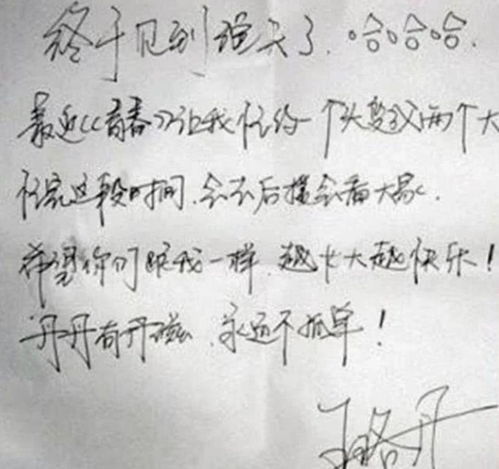 终于见到组大了.哈哈哈.
最近《青春》让我忙的一个头变成两个大
忙完这段时间.会去后援会看大家.
希望你们跟我一样.越长大越快乐!
丹丹有丹磁.永远不孤单!
王珞丹